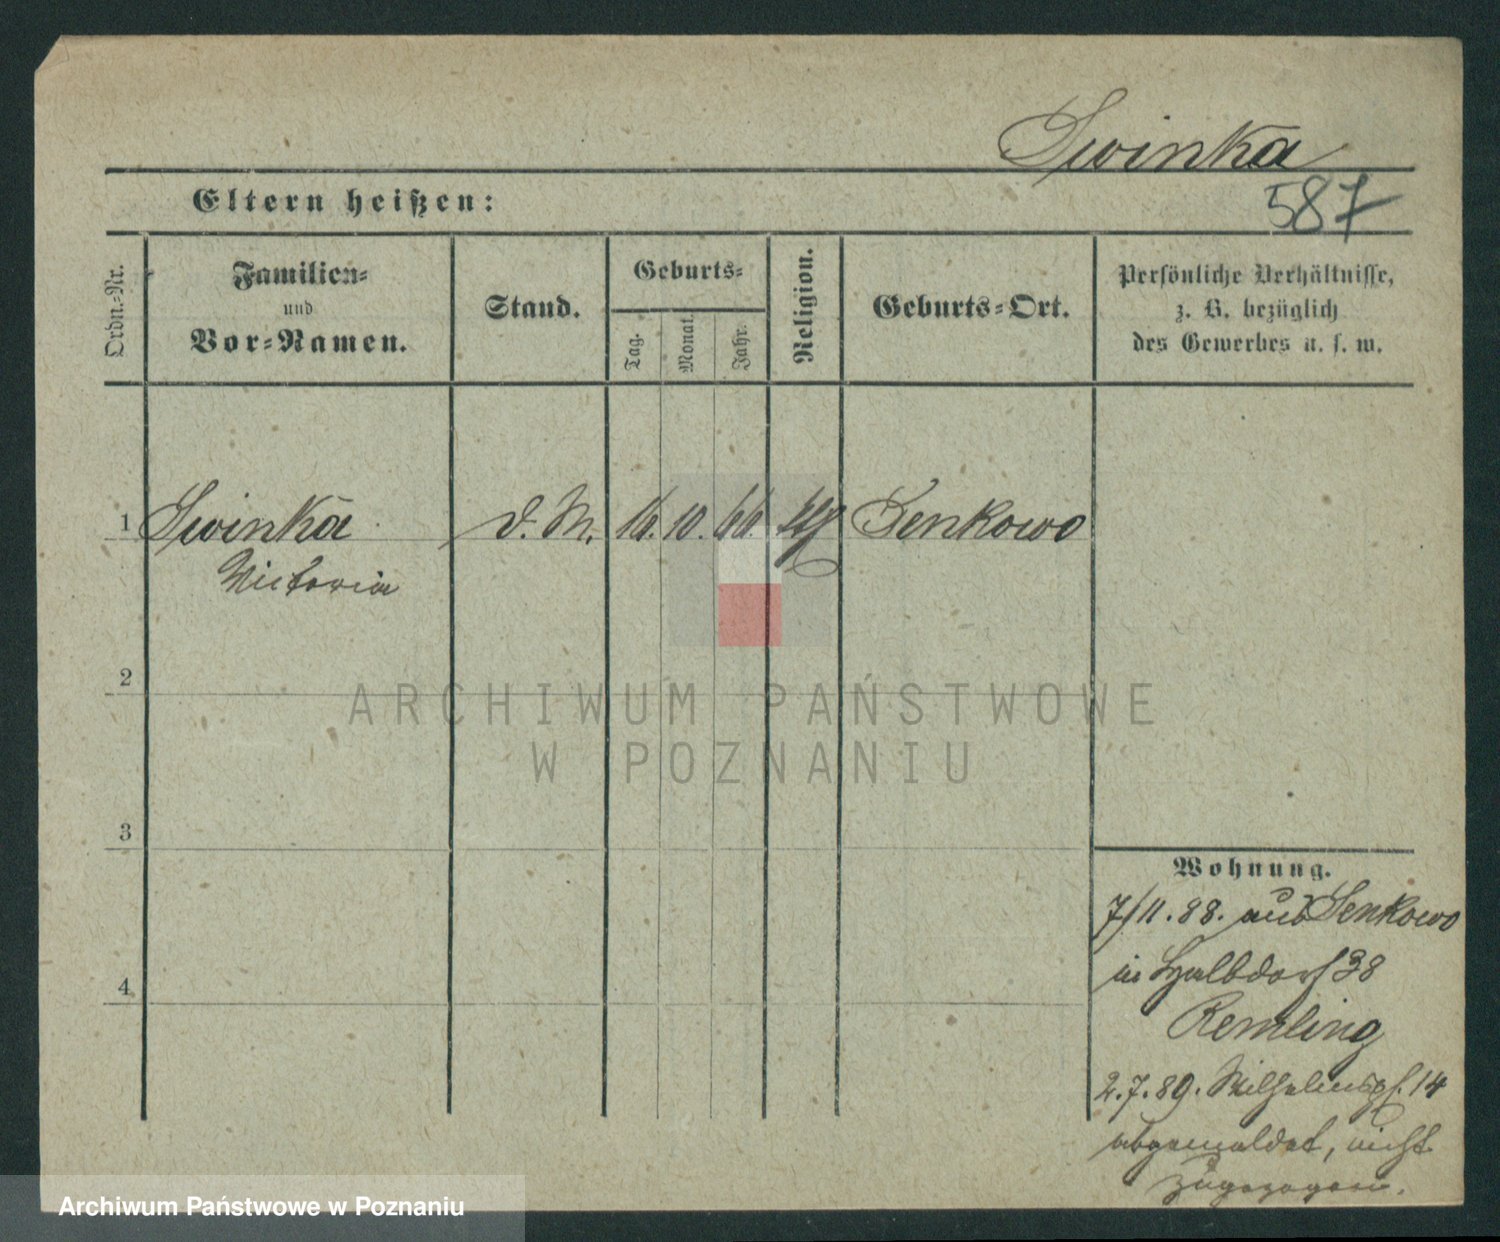 Swinka
Eltern heißen:
587
Ordn.-Nr.
Familien-
und
Vor-Namen.
Stand.
Geburts-
Tag.
Monat.
Jahr.
Religion.
Geburts-Ort.
Persönliche Verhältnisse,
z. B. bezüglich
des Gewerbes u. s. w.
1 Swinka d. M. 16. 10. 66. Senkowo
Victoria
2
3
4
Wohnung.
7/11. 88. aus Senkowo
in Halbdorf 38
Remling
2.7.89. Wilhelmspl. 14
abgemeldet, nicht
zugezogen.
ARCHIWUM PAŃSTWOWE
W POZNANIU
Archiwum Państwowe w Poznaniu